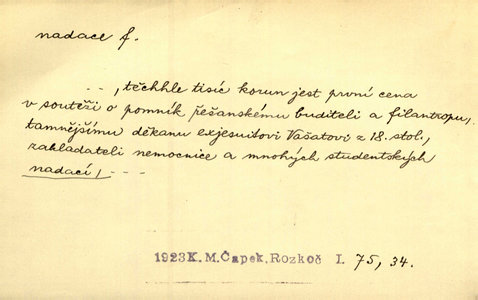 nadace f.
- -, těchhle tisíc korun jest první cena
v soutěži o pomník řešanskému buditeli a filantropu,
tamnějšímu děkanu exjesuitovi Vašatovi z 18. stol.,
zakladateli nemocnice a mnohých studentských
nadací, - - -
1923 K. M. Čapek, Rozkoč I. 75, 34.